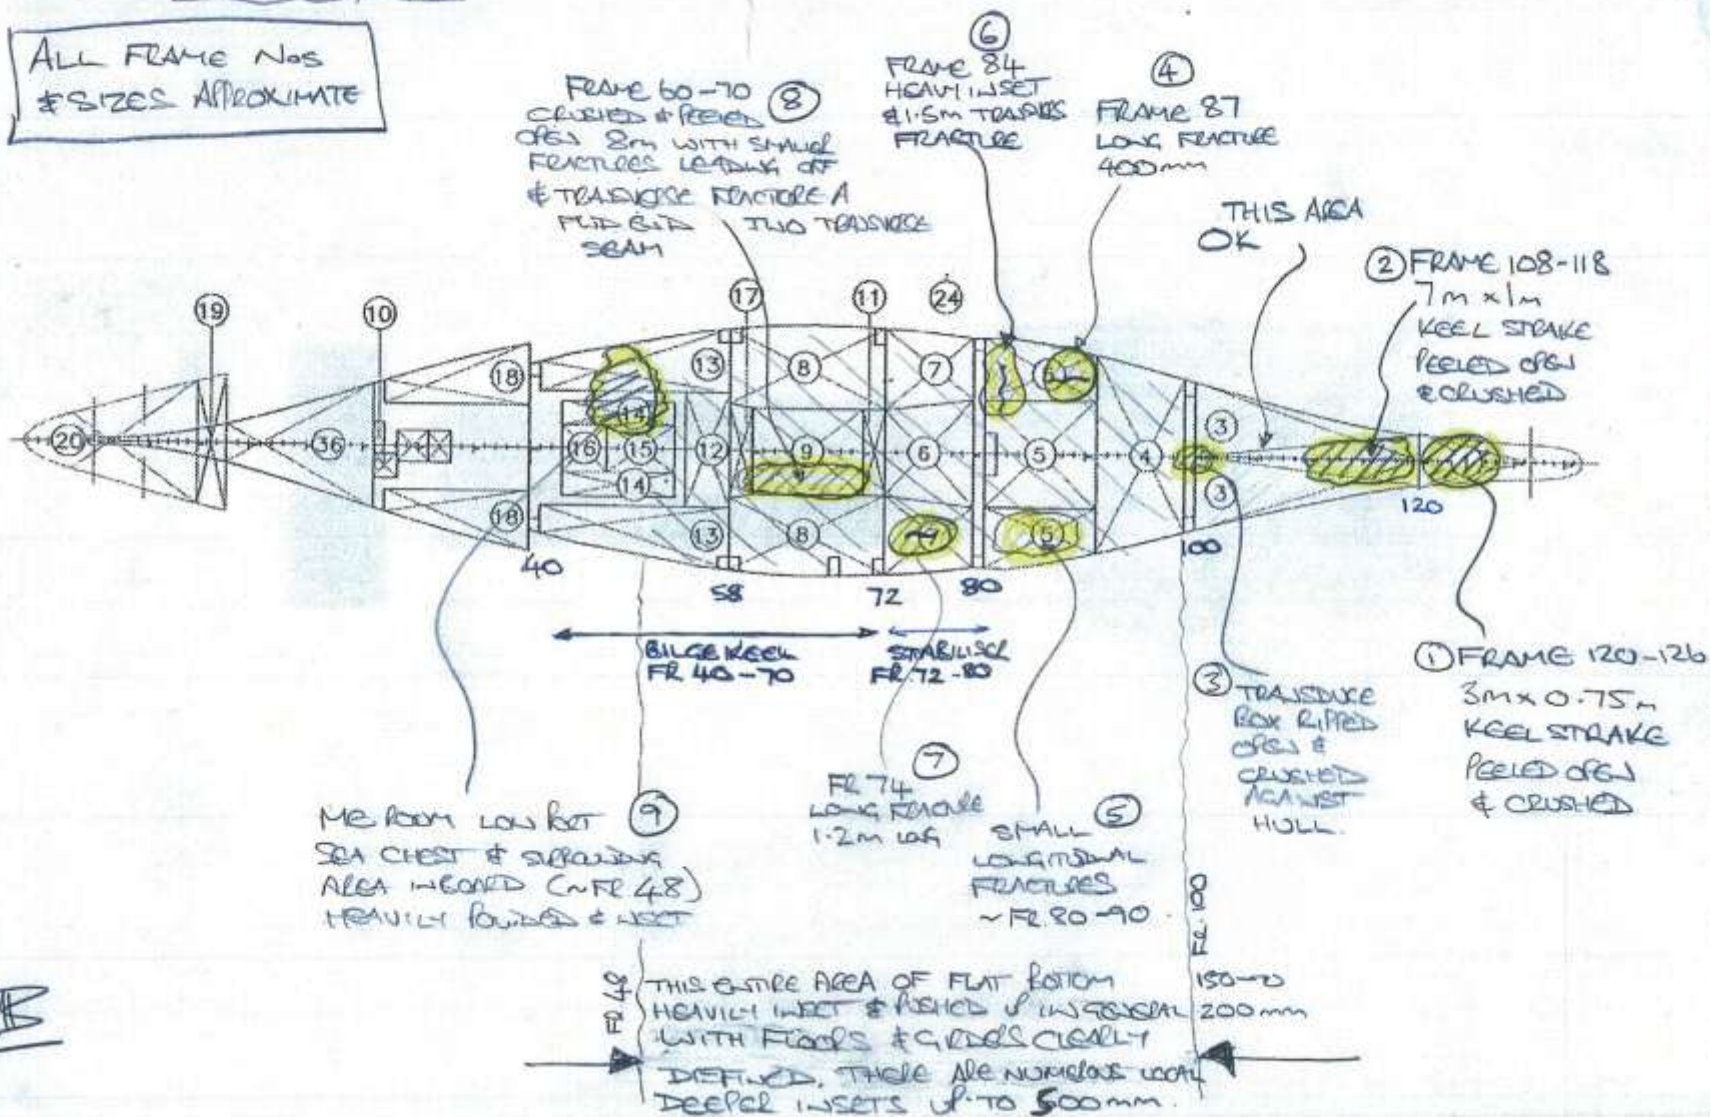 ALL FRAME Nos
& SIZES APPROXIMATE
FRAME 60-70 ⑧
CRUSHED & PEELED
OPEN 8m WITH SMALLER
FRACTURES LEADING OFF
& TRANSVERSE FRACTURE A
SEAM
TWO TRANSVERSE
⑥
FRAME 84
HEAVY INSET
& 1.5m TRANSVRS
FRACTURE
④
FRAME 87
LONG FRACTURE
400mm
THIS AREA
OK
② FRAME 108-118
7m x 1m
KEEL STRAKE
PEELED OPEN
& CRUSHED
19
10
17
11
24
18
13
8
7
14
20
36
16
15
12
9
6
5
4
3
14
3
18
13
8
5
40
58
72
80
100
120
BILGE KEEL
FR 40-70
STABILISER
FR 72-80
① FRAME 120-126
3m x 0.75m
KEEL STRAKE
PEELED OPEN
& CRUSHED
③ TRANSDUCE
BOX RIPPED
OPEN &
CRUSHED
AGAINST
HULL.
⑦
FR 74
LONG FRACTURE
1.2m LONG
SMALL ⑤
LONGITUDINAL
FRACTURES
~FR 80-90
ME ROOM LOW PORT ⑨
SEA CHEST & SURROUNDING
AREA INBOARD (~FR 48)
HEAVILY & INSET
THIS ENTIRE AREA OF FLAT BOTTOM 150-20
HEAVILY INSET & PUSHED UP IN GENERAL 200mm
WITH FLOORS & GIRDERS CLEARLY
DEFINED. THERE ARE NUMEROUS LOCAL
DEEPER INSETS UP TO 500mm.